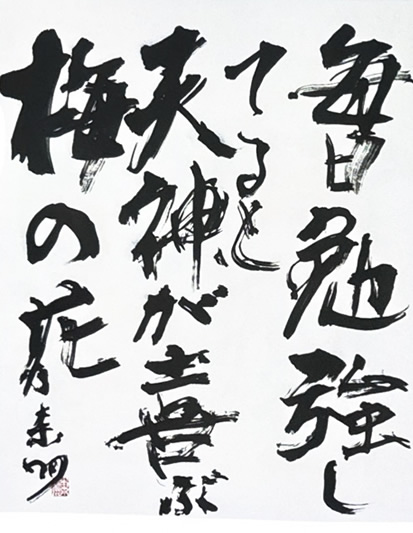 毎日勉強し
てると
天神が喜ぶ
梅の花